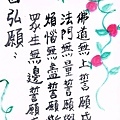 弘願：
眾生無邊誓願
煩惱無盡誓願
法門無量誓願
佛道無上誓願